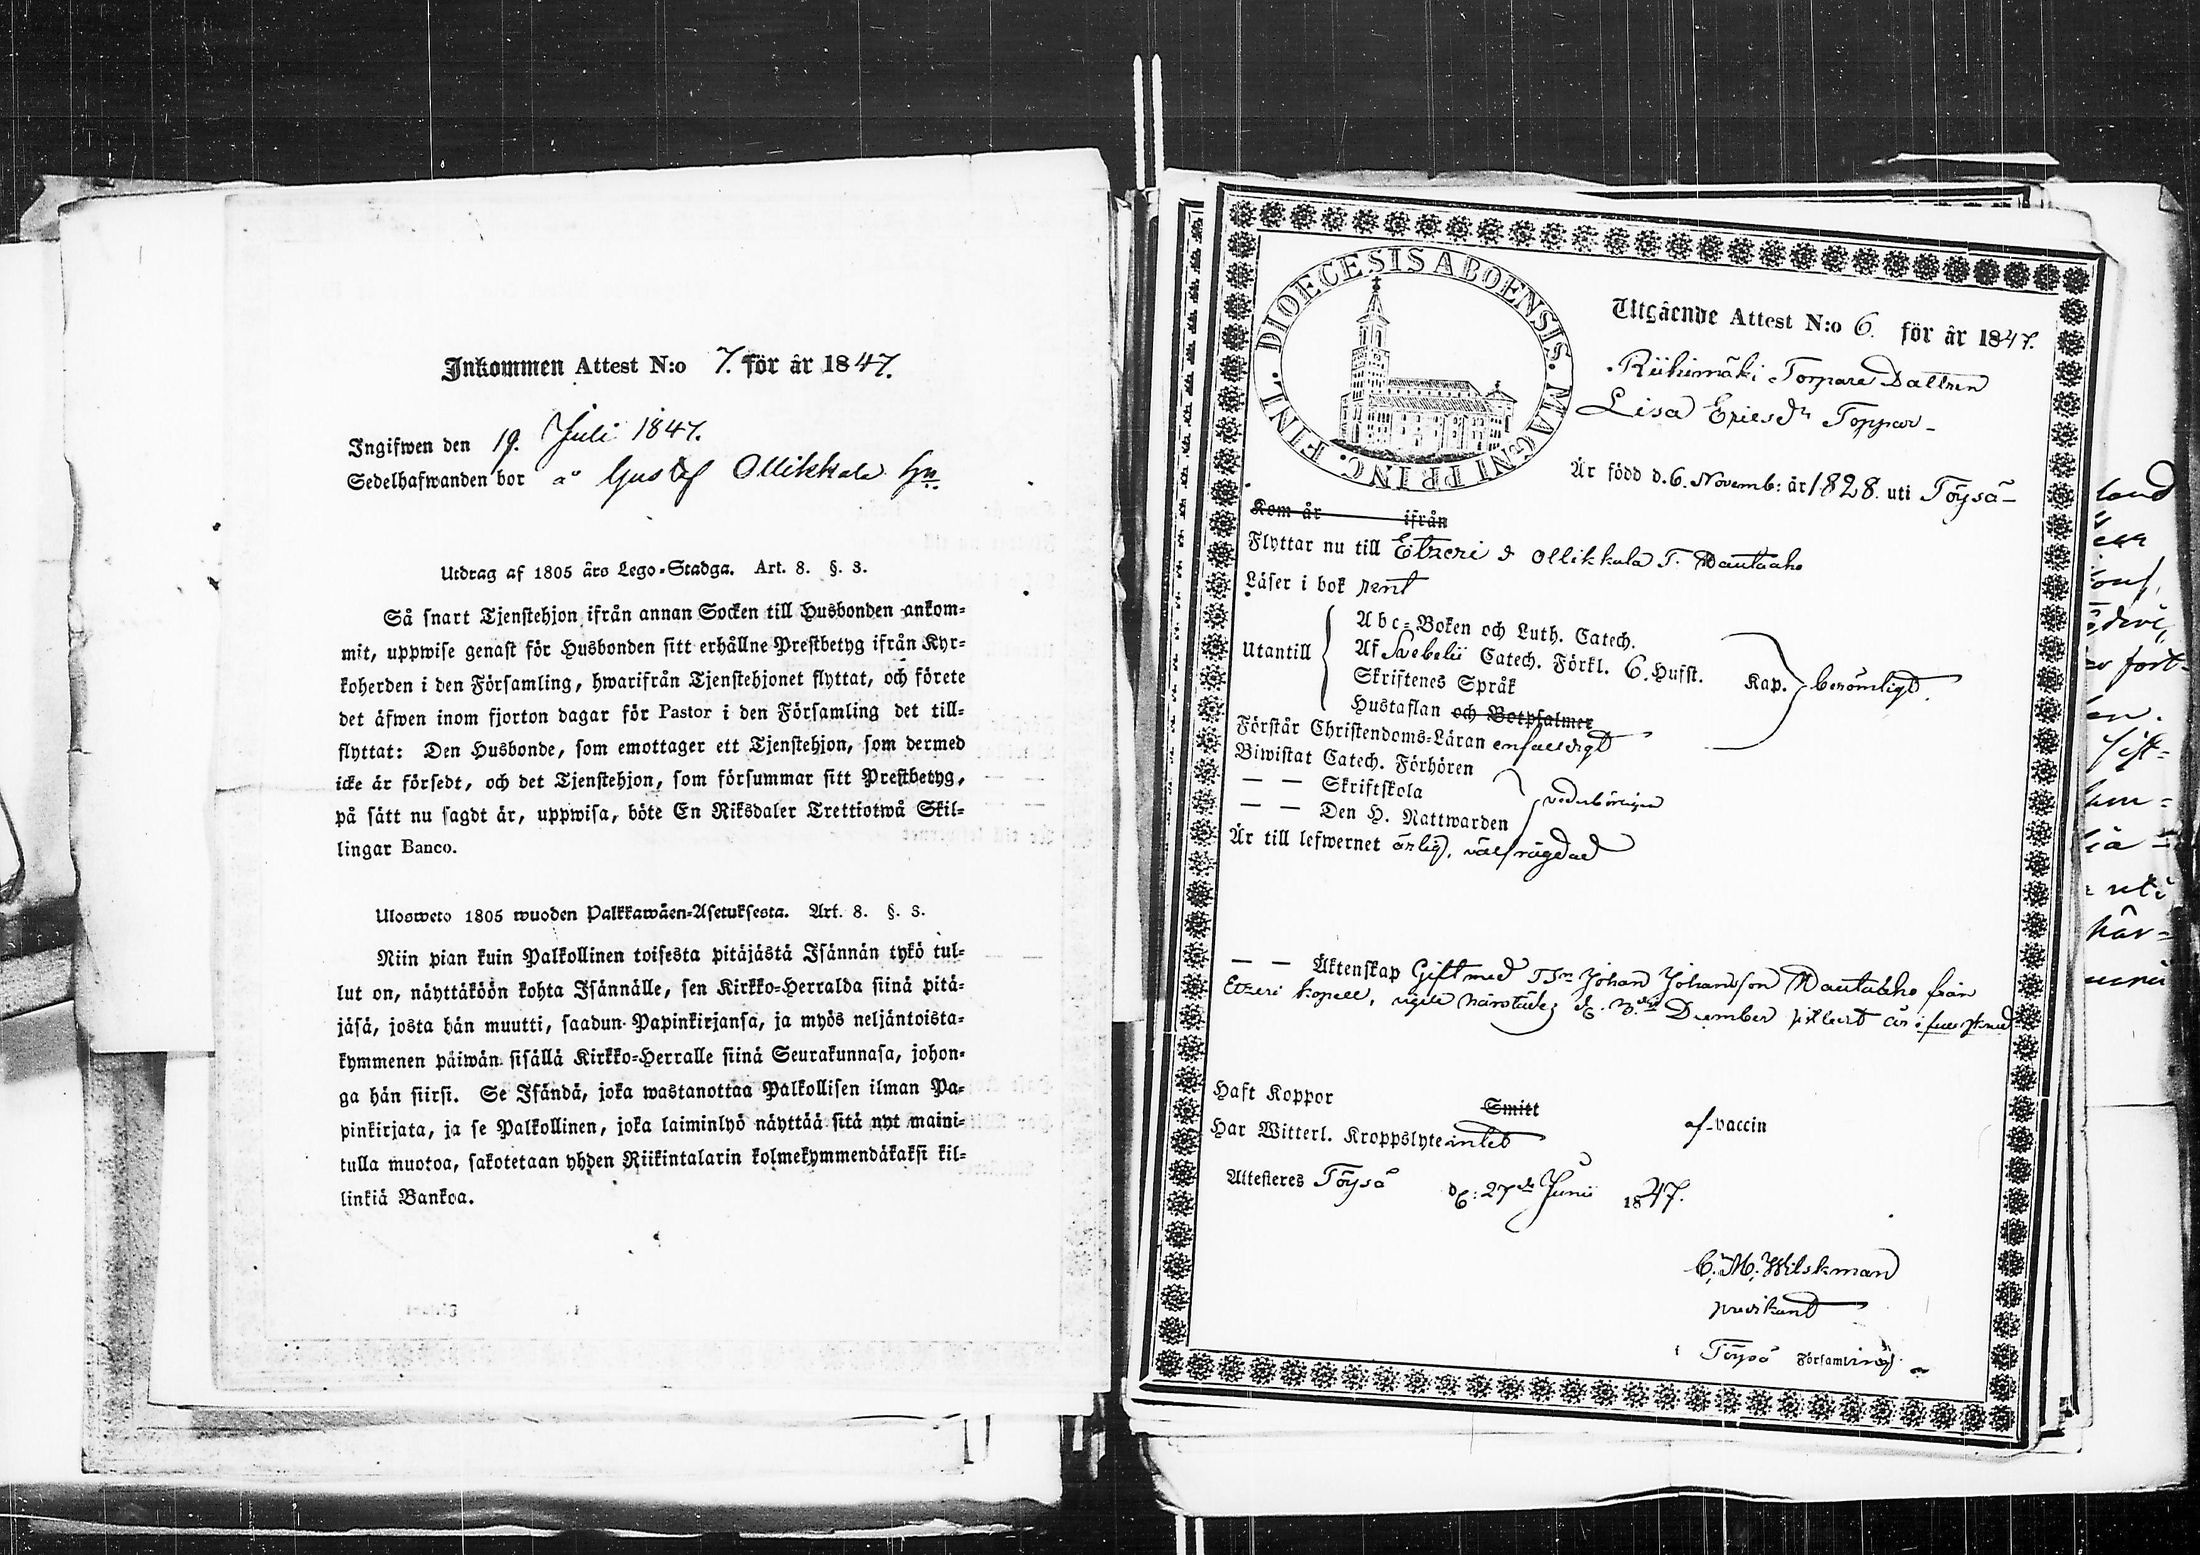 Inkommen Attest N:o 7. för år 1847.
Ingifwen den 19. Juli 1847.
Sedelhafwanden bor å Gustaf Ollikkala hn
Utdrag af 1805 års Lego-Stadga. Art. 8. §. 3.
Så snart Tjenstehjon ifrån annan Socken till Husbonden ankom-
mit, uppwise genast för Husbonden sitt erhållne Prestbetyg ifrån Kyr-
koherden i den Församling, hwarifrån Tjenstehjonet flyttat, och förete
det äfwen inom fjorton dagar för Pastor i den Församling det till-
flyttat: Den Husbonde, som emottager ett Tjenstehjon, som dermed
icke är försedt, och det Tjenstehjon, som försummar sitt Prestbetyg,
på sätt nu sagdt är, uppwisa, böte En Riksdaler Trettiotwå Skil-
lingar Banco.
Ulosweto 1805 wuoden Palkkawäen-Asetuksesta. Art. 8. §. 3.
Niin pian kuin Palkollinen toisesta pitäjästä Isännän tykö tul-
lut on, näyttäköön kohta Isännälle, sen Kirkko-Herralda siinä pitä-
jäsä, josta hän muutti, saadun Papinkirjansa, ja myös neljäntoista-
kymmenen päiwän sisällä Kirkko-Herralle siinä Seurakunnasa, johon-
ga hän siirsi. Se Isändä, joka wastanottaa Palkollisen ilman Pa-
pinkirjata, ja se Palkollinen, joka laiminlyö näyttää sitä nyt maini-
tulla muotoa, sakotetaan yhden Riikintalarin kolmekymmendäkaksi kil-
linkiä Bankoa.
DIOECESIS ABOENSIS. MAGNI PRINC. FINL.
Utgående Attest N:o 6. för år 1847.
Riihimäki Torpare Dattren
Lisa Ericsdr Toppar
Är född d. 6. Novemb: år 1828. uti Töysä
Kom år ifrån
Flyttar nu till Etzeri & Ollikkala T. Mautaaho
Läser i bok rent
Abc-Boken och Luth. Catech.
Utantill Af Svebelii Catech. Förkl. 6. Hufst. Kap. berömligt.
Skriftenes Språk
Hustaflan och Botpsalmer
Förstår Christendoms-Läran enfaldigt
Biwistat Catech. Förhören
— — Skriftskola vederbörligen
— — Den H. Nattwarden
Är till lefwernet ärlig, välfrägdad
— — Äktenskap Gift med TSn Johan Johansson Mautaaho från
Etzeri kapell, December
Haft Koppor Smitt af vaccin
Har Witterl. Kroppslyte intet
Attesteres Töysä d: 27de Junii 1847.
C. M. Wilskman
predikant
i Töysä Församling